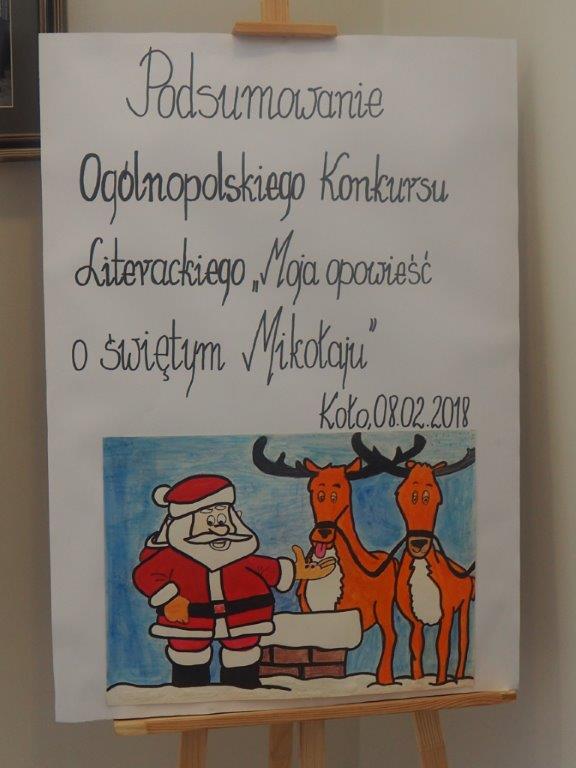 Podsumowanie
Ogólnopolskiego Konkursu
Literackiego „Moja opowieść
o świętym Mikołaju”
Koło, 08.02.2018